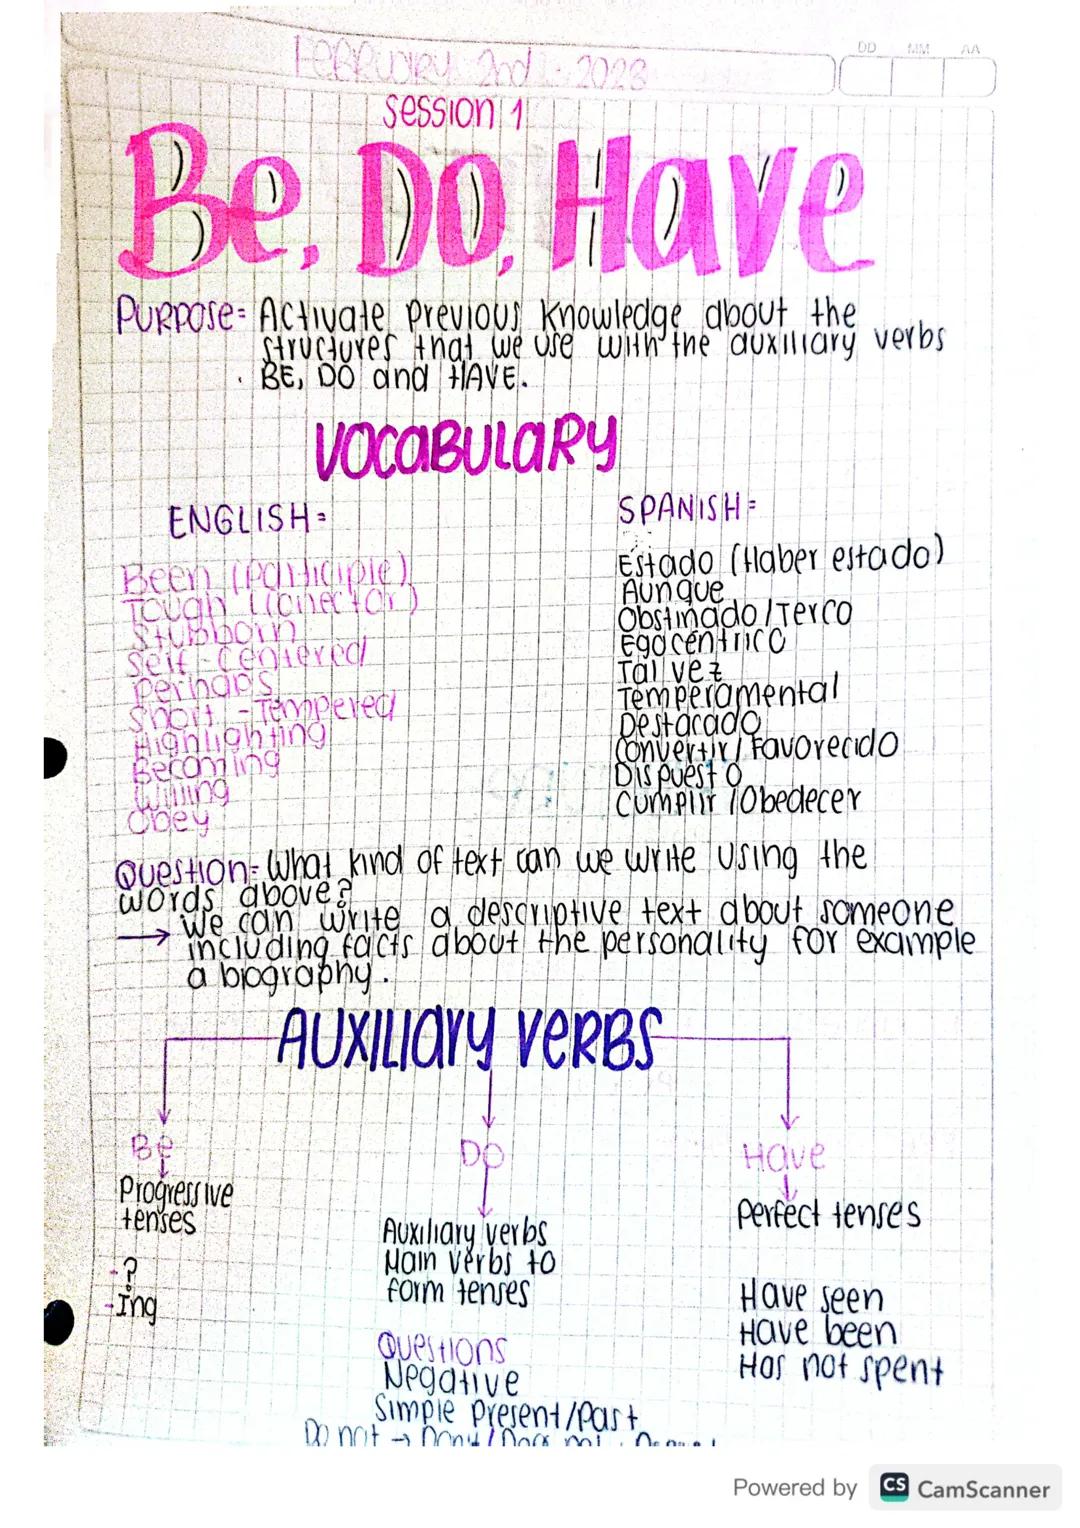 DD MM AA
February 2nd - 2023
Session 1
Be, Do, Have
Purpose= Activate previous knowledge about the
structures that we use with the auxiliary verbs
BE, DO and HAVE.
VOCABULARY
ENGLISH=
SPANISH=
Been (participle)
Estado (Haber estado)
Tough (conector)
Aunque
Stubborn
Obstinado/Terco
Self-Centered
Egocéntrico
Perhaps
Tal vez
Short-Tempered
Temperamental
Highlighting
Destacado
Becoming
Convertir/Favorecido
Willing
Dispuesto
Obey
Cumplir/Obedecer
Question= What kind of text can we write using the
words above?
→ We can write a descriptive text about someone
including facts about the personality for example
a biography.
AUXILIARY VERBS
Be Do Have
Progressive
tenses
- ?
- Ing
Auxiliary verbs
Main verbs to
form tenses
Questions
Negative
Simple Present/Past
Do not → Don't/Does not
Perfect tenses
Have seen
Have been
Has not spent
Powered by CS CamScanner